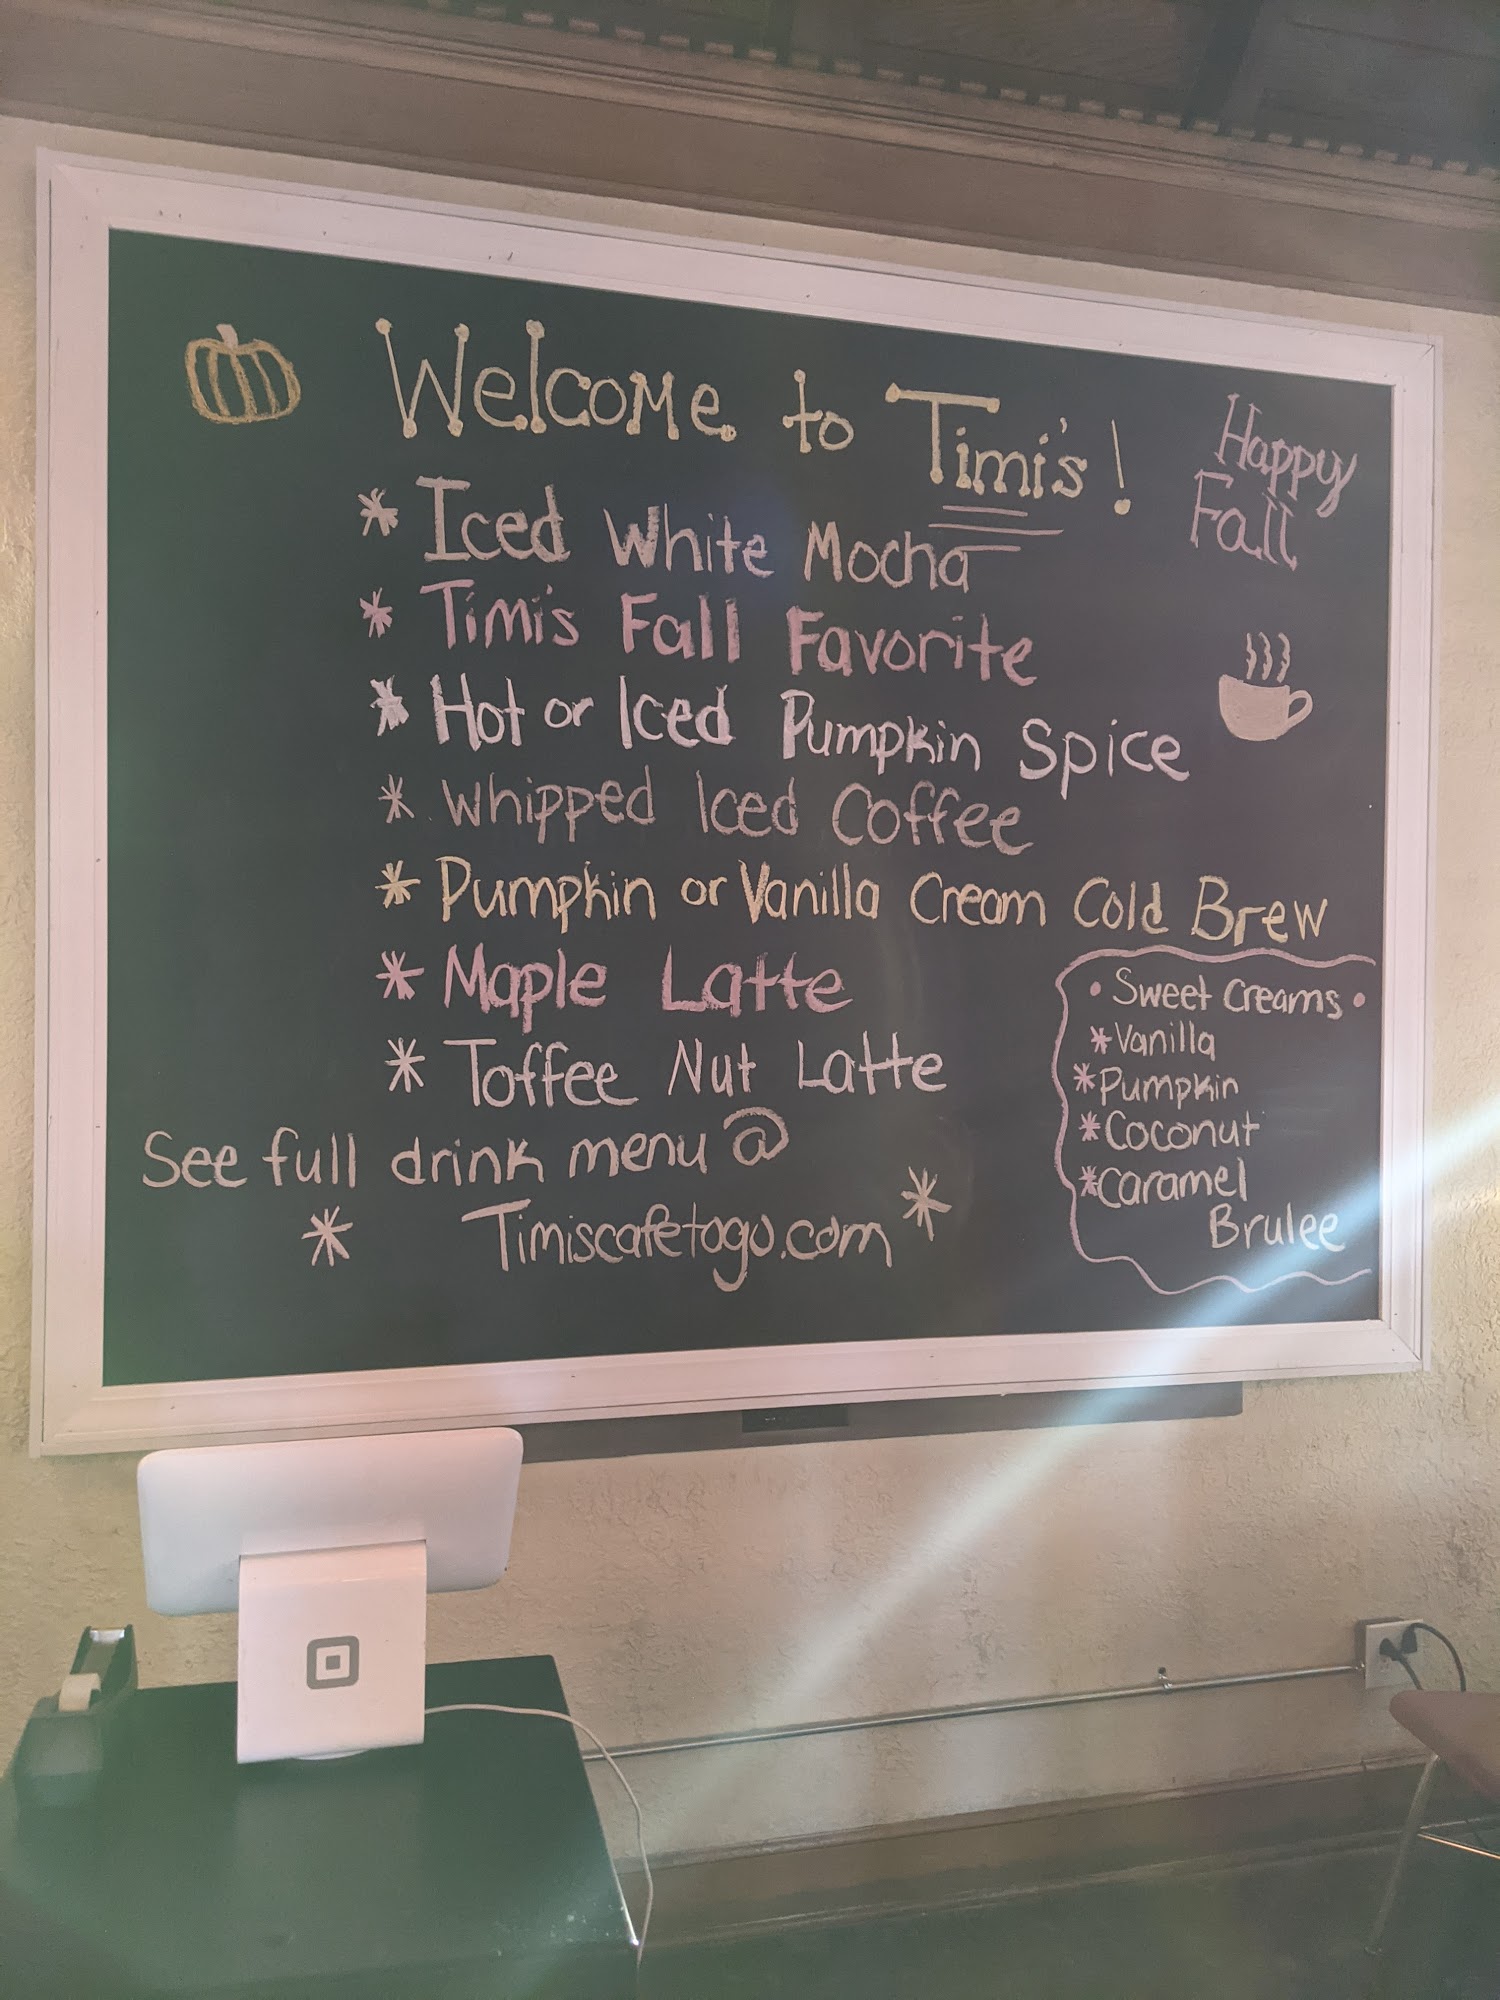 Welcome to Timi's!
Happy
Fall
* Iced White Mocha
* Timi's Fall Favorite
* Hot or Iced Pumpkin Spice
* Whipped Iced Coffee
* Pumpkin or Vanilla Cream Cold Brew
* Maple Latte
* Toffee Nut Latte
See full drink menu @
* Timiscafetogo.com *
• Sweet Creams •
* Vanilla
* Pumpkin
* Coconut
* Caramel
Brulee